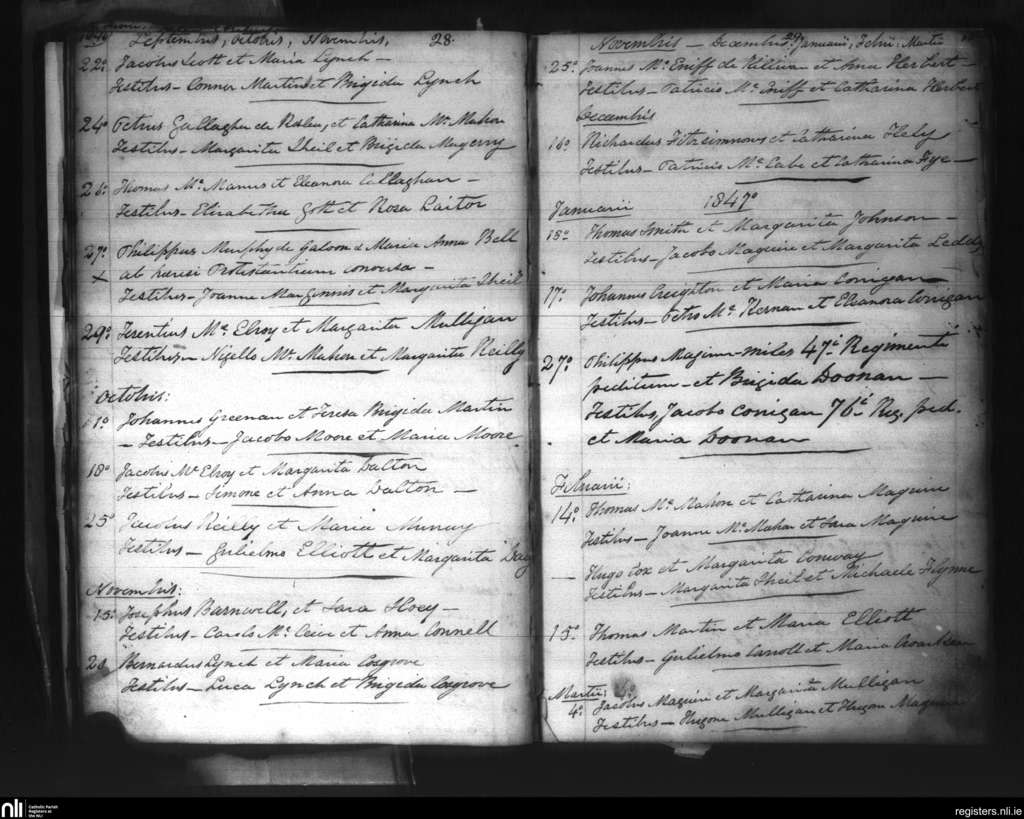 1846
Septembris, Octobris, Novembris, 28.
22º Jacobus Scott et Maria Lynch —
Testibus — Connor Martin et Brigida Lynch
24º Petrus Gallagher de et Catharina Mc Mahon
Testibus — Margarita Sheil et Brigida
26º Thomas Mc Manus et Eleanora Callaghan —
Testibus — Elizabetha Gott et Rosa
27º Philippus Murphy de Galoon & Maria Anna Bell
x ab heresi Protestantium conversa —
Testibus — Joanne et Margarita Sheil
29º Terentius Mc Elroy et Margarita Mulligan
Testibus — Nigello Mc Mahon et Margarita Reilly
Octobris:
11º Johannes Greenan et Teresa Brigida Martin
— Testibus — Jacobo Moore et Maria Moore
18º Jacobus Mc Elroy et Margarita Dalton
Testibus — Simone et Anna Dalton —
25º Jacobus Reilly et Maria Murray
Testibus — Gulielmo Elliott et Margarita
Novembris:
15º Josephus Barnwell, et Sara Hoey —
Testibus — Carolo Mc et Anna Connell
Bernardus Lynch et Maria Cosgrove
Testibus — Luca Lynch et Brigida Cosgrove
29
Novembris — Decembris, Januarii, Febrii: Martii
25º Joannes Mc Eniff de et Anna Herbert —
Testibus — Patricio Mc Eniff et Catharina Herbert
Decembris
16º Richardus Fitzsimmons et Catharina Hely
Testibus — Patricio Mc Cabe et Catharina —
Januarii 1847º
Thomas Smith et Margarita Johnson —
Testibus — Jacobo Maguire et Margarita Leddy
17º Johannes Creighton et Maria Corrigan
Testibus — Petro Mc Kernan et Eleanora Corrigan
27º Philippus Maguire miles 47i Regimenti
peditum — et Brigida Doonan —
Testibus, Jacobo Corrigan 76i Reg. ped.
et Maria Doonan
Februarii:
14º Thomas Mc Mahon et Catharina Maguire
Testibus — Joanne Mc Mahon et Sara Maguire
— Hugo Cox et Margarita Conway
Testibus — Margarita Sheil et Michaele Flynne
15º Thomas Martin et Maria Elliott
Testibus — Gulielmo Carroll et Maria
Martii:
4º Jacobus Maguire et Margarita Mulligan
Testibus — Hugone Mulligan et Hugone Maguire
nli Catholic Parish
Registers at
the NLI
registers.nli.ie